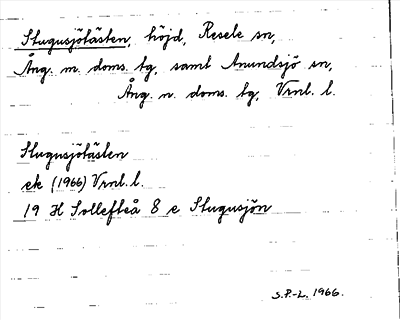 Stugusjötåsten, höjd, Resele sn,
Ång. m. doms. tg, samt Anundsjö sn,
Ång. n. doms. tg, Vrnl. l.
Stugusjötåsten
ek (1966) Vrnl. l.
19 H Sollefteå 8 e Stugusjön
S.P.-L. 1966.